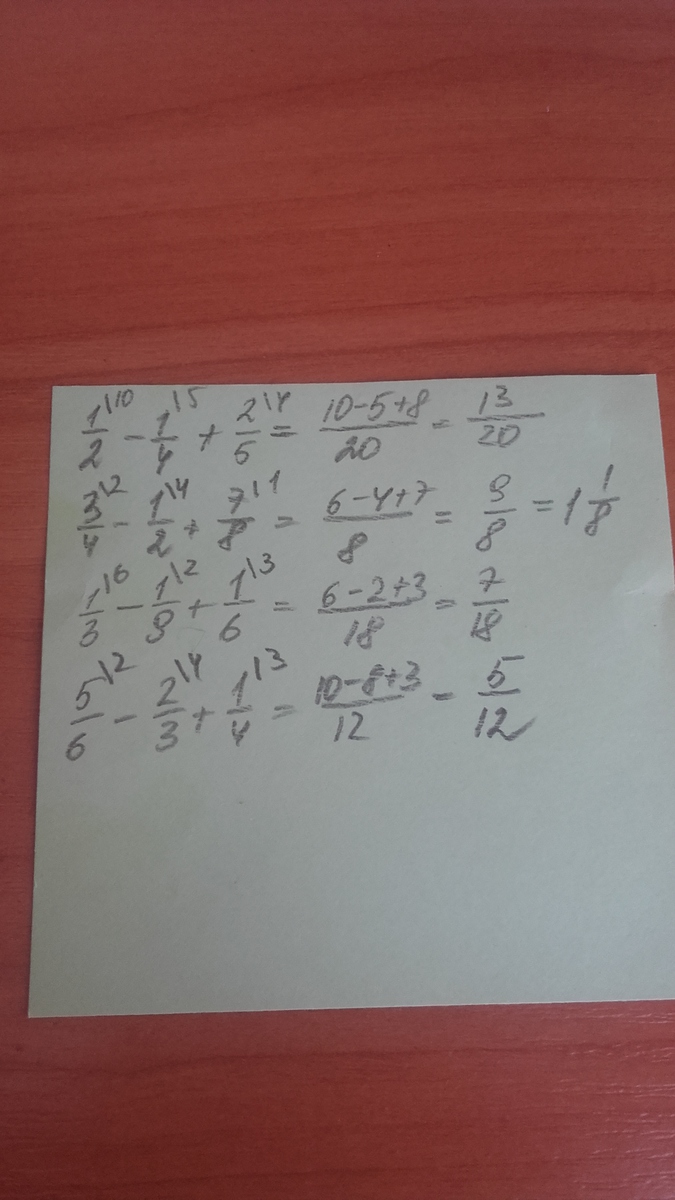 1/2\10 - 1/4\5 + 2/5\4 = (10-5+8)/20 = 13/20
3/4\2 - 1/2\4 + 7/8\1 = (6-4+7)/8 = 9/8 = 1 1/8
1/3\6 - 1/9\2 + 1/6\3 = (6-2+3)/18 = 7/18
5/6\2 - 2/3\4 + 1/4\3 = (10-8+3)/12 = 5/12